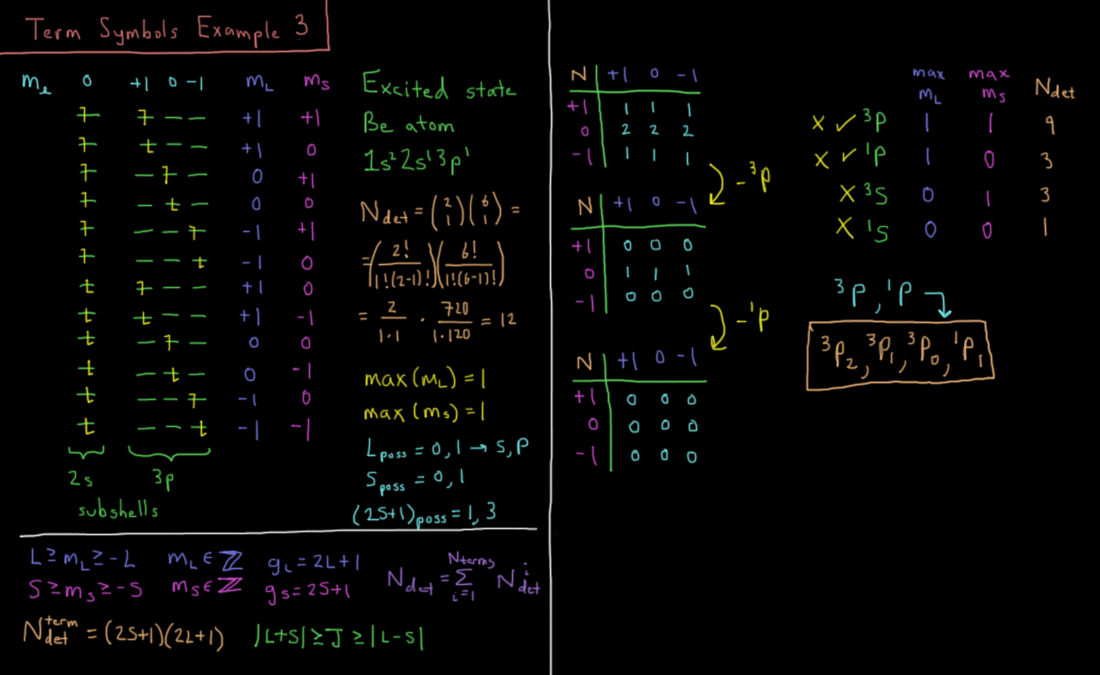 Term Symbols Example 3
mℓ 0 +1 0 -1 mL mS
↿ ↿ — — +1 +1
↿ ⇂ — — +1 0
↿ — ↿ — 0 +1
↿ — ⇂ — 0 0
↿ — — ↿ -1 +1
↿ — — ⇂ -1 0
⇂ ↿ — — +1 0
⇂ ⇂ — — +1 -1
⇂ — ↿ — 0 0
⇂ — ⇂ — 0 -1
⇂ — — ↿ -1 0
⇂ — — ⇂ -1 -1
2s 3p
subshells
Excited state
Be atom
1s² 2s¹ 3p¹
Ndet = (2 1)(6 1) =
= (2! / 1!(2-1)!)(6! / 1!(6-1)!)
= 2 / 1·1 · 720 / 1·120 = 12
max(mL) = 1
max(mS) = 1
Lposs = 0, 1 → S, P
Sposs = 0, 1
(2S+1)poss = 1, 3
L ≥ mL ≥ -L mL ∈ ℤ gL = 2L+1
S ≥ mS ≥ -S mS ∈ ℤ gS = 2S+1
Ndet = Σ i=1 Nterms Nⁱdet
Ndet^term = (2S+1)(2L+1) |L+S| ≥ J ≥ |L-S|
N +1 0 -1
+1 1 1 1
0 2 2 2
-1 1 1 1
-³P
N +1 0 -1
+1 0 0 0
0 1 1 1
-1 0 0 0
-¹P
N +1 0 -1
+1 0 0 0
0 0 0 0
-1 0 0 0
max mL max mS Ndet
X ✓ ³P 1 1 9
X ✓ ¹P 1 0 3
X ³S 0 1 3
X ¹S 0 0 1
³P, ¹P
³P₂, ³P₁, ³P₀, ¹P₁